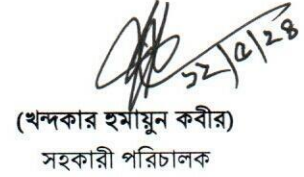 ১২/৫/২৪
(খন্দকার হুমায়ুন কবীর)
সহকারী পরিচালক